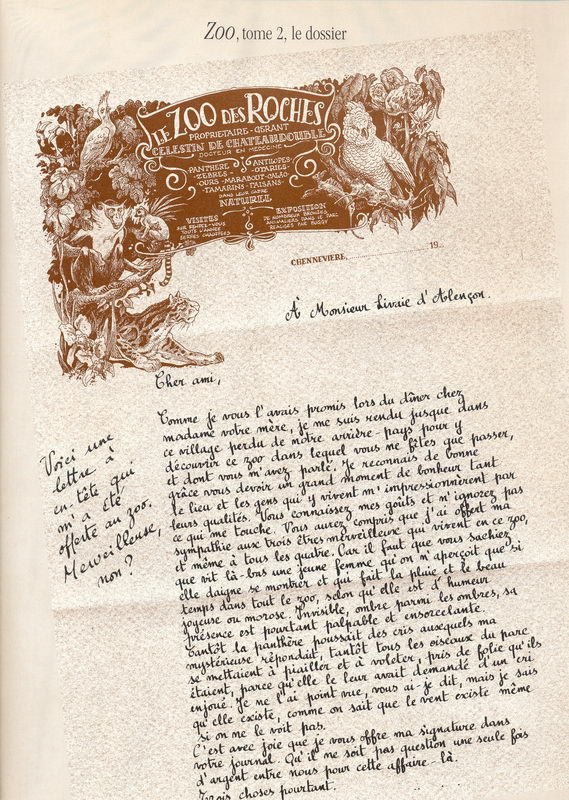 Zoo, tome 2, le dossier
LE ZOO DES ROCHES
PROPRIETAIRE - GERANT
CELESTIN DE CHATEAUDOUBLE
DOCTEUR EN MEDECINE
PANTHERE ANTILOPES
-ZEBRES- -OTARIES-
-OURS-MARABOUT-CALAO-
TAMARINS-FAISANS
DANS LEUR CADRE
NATUREL
VISITES
SUR RENDEZ-VOUS
TOUTE L'ANNEE
SERRES CHAUFFEES
EXPOSITION
DE NOMBREUX BRONZES
ANIMALIERS DANS LE PARC
REALISES PAR BUGGY
CHENNEVIÈRE, 19..
À Monsieur Livaie d'Alençon.
Cher ami,
Comme je vous l'avais promis lors du dîner chez
madame votre mère, je me suis rendu jusque dans
ce village perdu de notre arrière-pays pour y
découvrir ce zoo dans lequel vous ne fîtes que passer,
et dont vous m'avez parlé. Je reconnais de bonne
grâce vous devoir un grand moment de bonheur tant
le lieu et les gens qui y vivent m'impressionnèrent par
leurs qualités. Vous connaissez mes goûts et n'ignorez pas
ce qui me touche. Vous aurez compris que j'ai offert ma
sympathie aux trois êtres merveilleux qui vivent en ce zoo,
et même à tous les quatre. Car il faut que vous sachiez
que vit là-bas une jeune femme qu'on n'aperçoit que si
elle daigne se montrer et qui fait la pluie et le beau
temps dans tout le zoo, selon qu'elle est d'humeur
joyeuse ou morose. Invisible, ombre parmi les ombres, sa
présence est pourtant palpable et ensorcelante.
Tantôt la panthère poussait des cris auxquels ma
mystérieuse répondait, tantôt tous les oiseaux du parc
se mettaient à piailler et à voleter, pris de folie qu'ils
étaient, parce qu'elle le leur avait demandé d'un cri
enjoué. Je ne l'ai point vue, vous ai-je dit, mais je sais
qu'elle existe, comme on sait que le vent existe même
si on ne le voit pas.
C'est avec joie que je vous offre ma signature dans
votre journal. Qu'il ne soit pas question une seule fois
d'argent entre nous pour cette affaire-là.
Trois choses pourtant.
Voici une
lettre à
en-tête qui
on a été
offerte au zoo.
Merveilleuse,
non ?